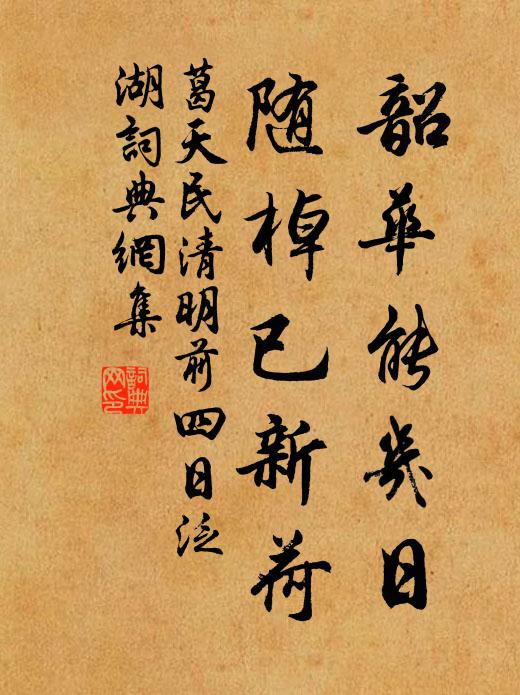 韶華能幾日
随棹已新荷
葛天民清明前四日泛
湖詞典網集
詞典网印